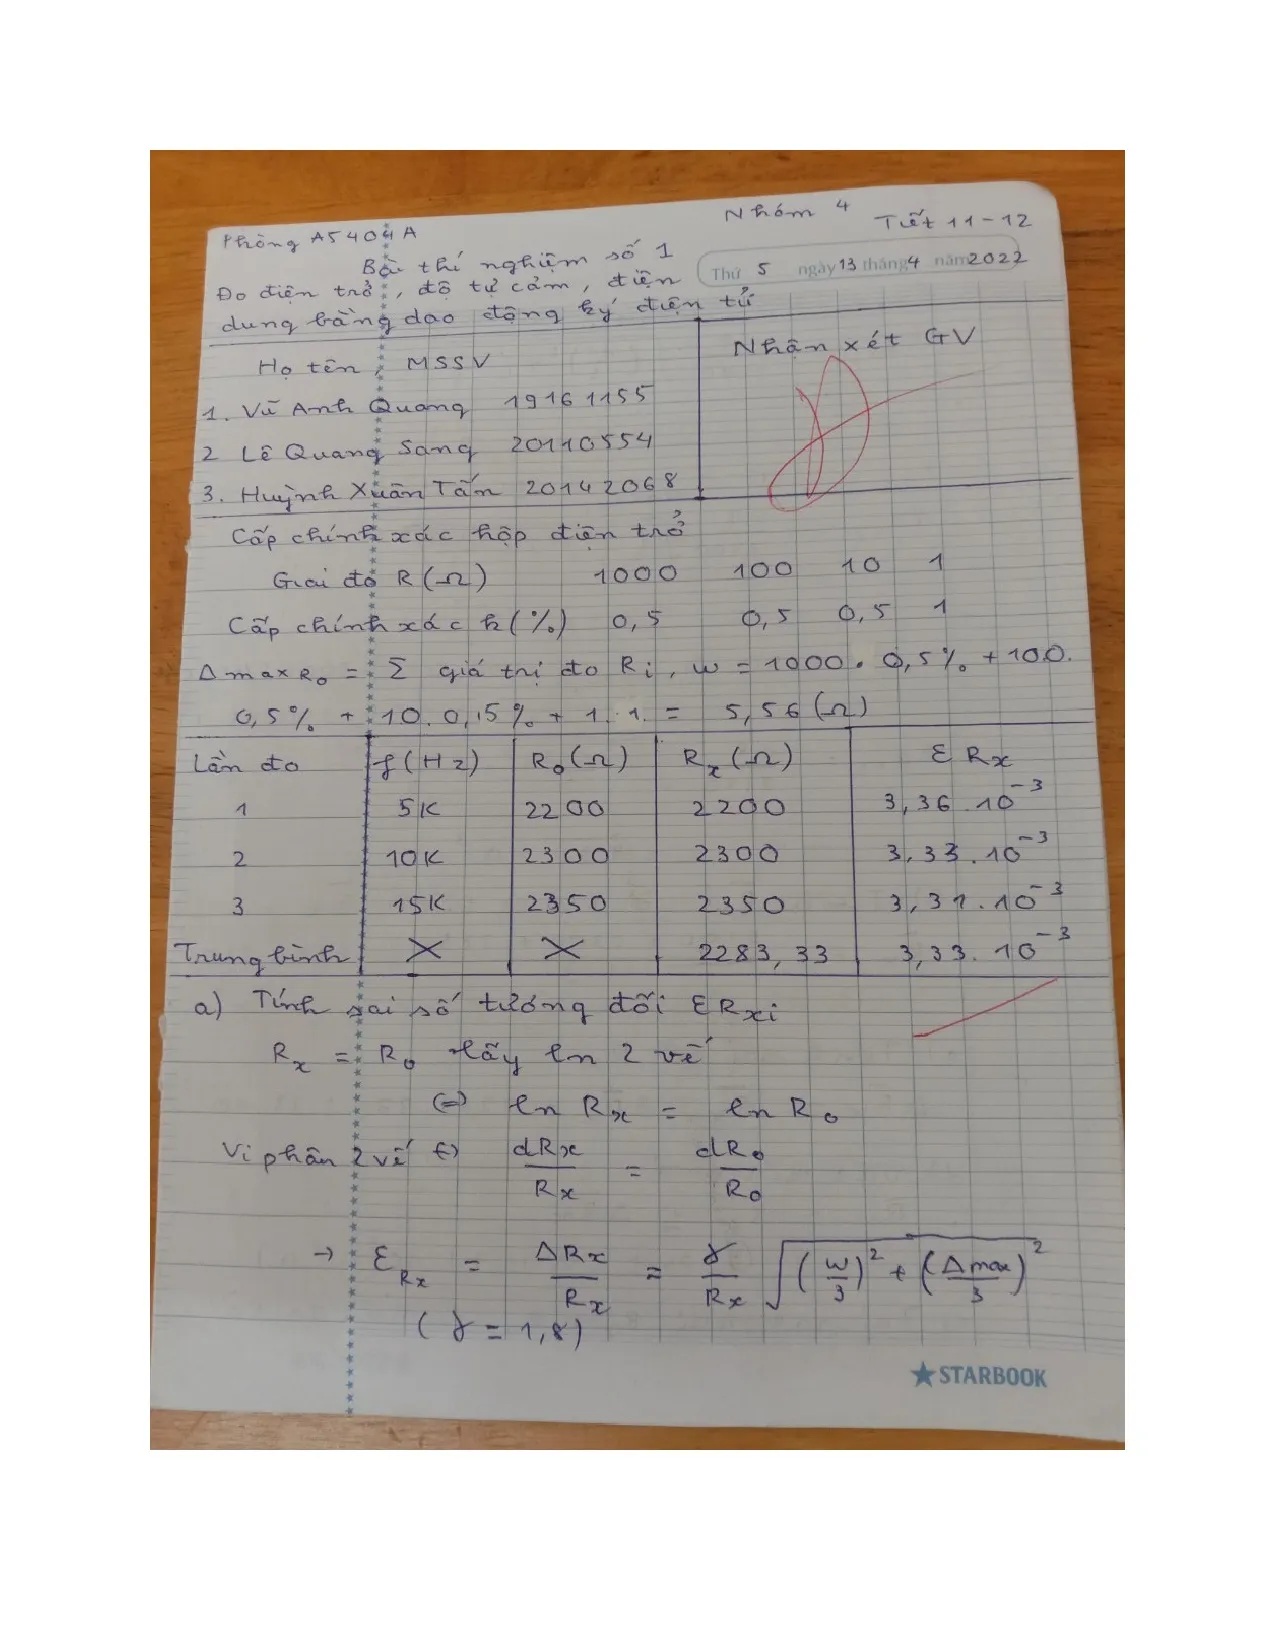 Phòng A5404A
Nhóm 4
Tiết 11-12
Bài thí nghiệm số 1
Thứ 5 ngày 13 tháng 4 năm 2022
Đo điện trở, độ tự cảm, điện
dung bằng dao động ký điện tử
Họ tên, MSSV
Nhận xét GV
1. Vũ Anh Quang 19161155
2 Lê Quang Sang 20110554
3. Huỳnh Xuân Tấn 20142068
Cấp chính xác hộp điện trở
Giai đo R(Ω) 1000 100 10 1
Cấp chính xác k(%) 0,5 0,5 0,5 1
Δmax R₀ = Σ giá trị đo Ri, w = 1000. 0,5% + 100.
0,5% + 10. 0,5% + 1. 1. = 5,56(Ω)
Lần đo f(Hz) R₀(Ω) Rx(Ω) ε Rx
1 5K 2200 2200 3,36.10⁻³
2 10K 2300 2300 3,33.10⁻³
3 15K 2350 2350 3,31.10⁻³
Trung bình X X 2283,33 3,33.10⁻³
a) Tính sai số tương đối εRxi
Rx = R₀ lấy ln 2 vế
(=) ln Rx = ln R₀
Vi phân 2 vế (-) dRx/Rx = dR₀/R₀
→ εRx = ΔRx/Rx = γ/Rx √((w/3)² + (Δmax/3)²
(γ = 1,8)
★STARBOOK